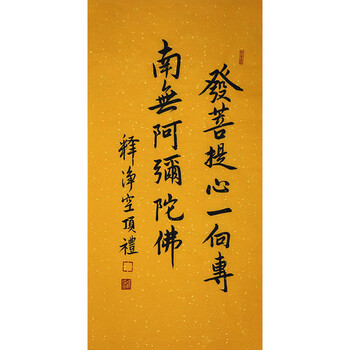 發菩提心一向專
南無阿彌陀佛
釋淨空頂禮